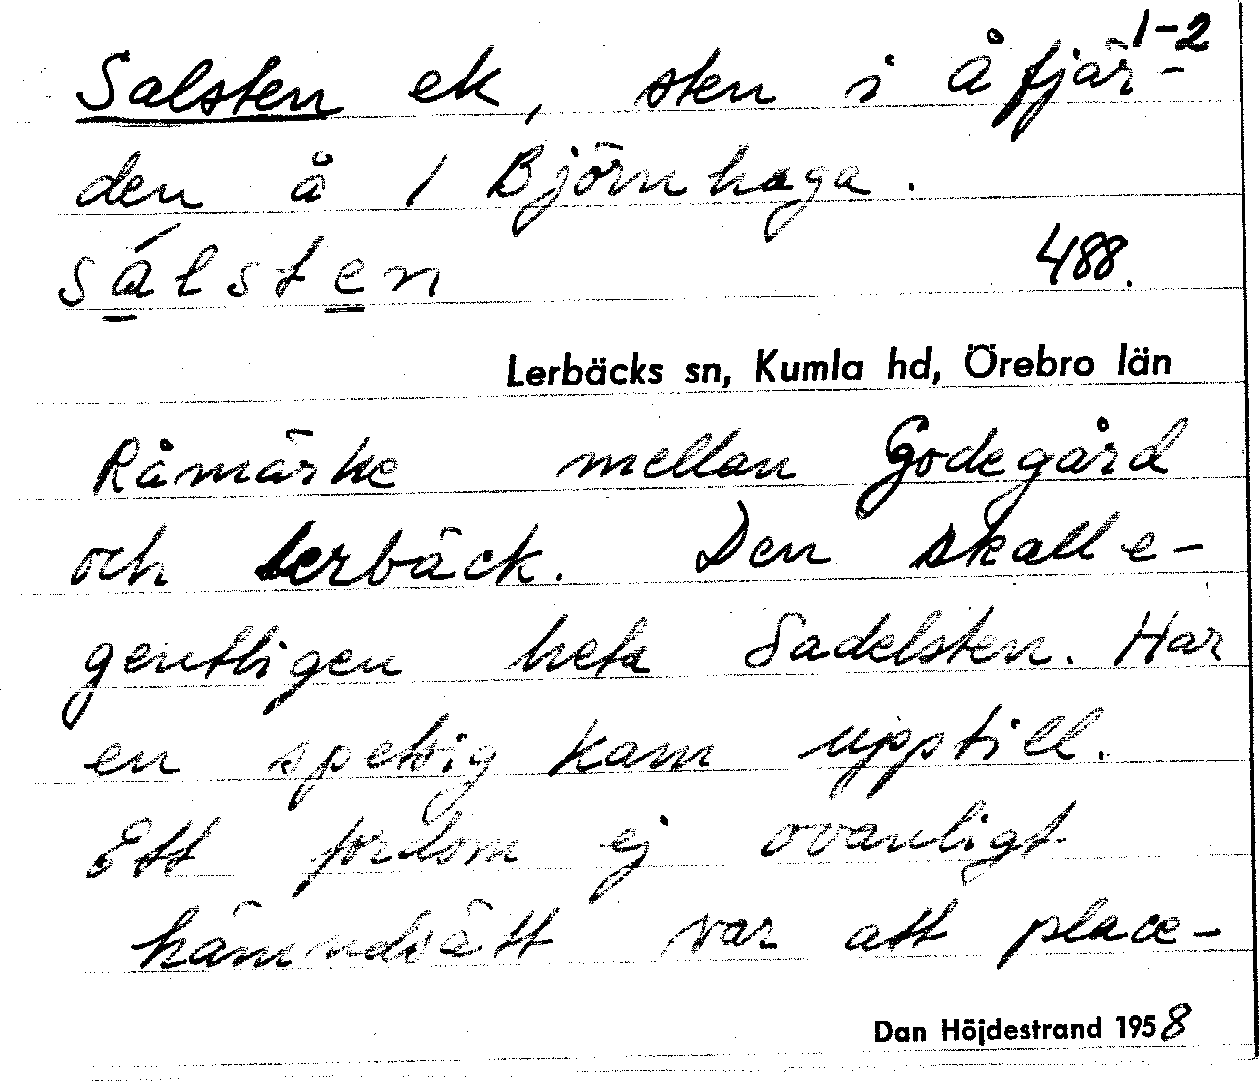 1-2
Salsten ek, sten i å fjär-
den å 1 Björnhaga.
sálsten
488.
Lerbäcks sn, Kumla hd, Örebro län
Råmärke mellan Godegård
och Lerbäck. Den skall e-
gentligen heta Sadelsten. Har
en spetsig kam upptill.
Ett fordom ej ovanligt
hämndsätt var att place-
Dan Höjdestrand 1958